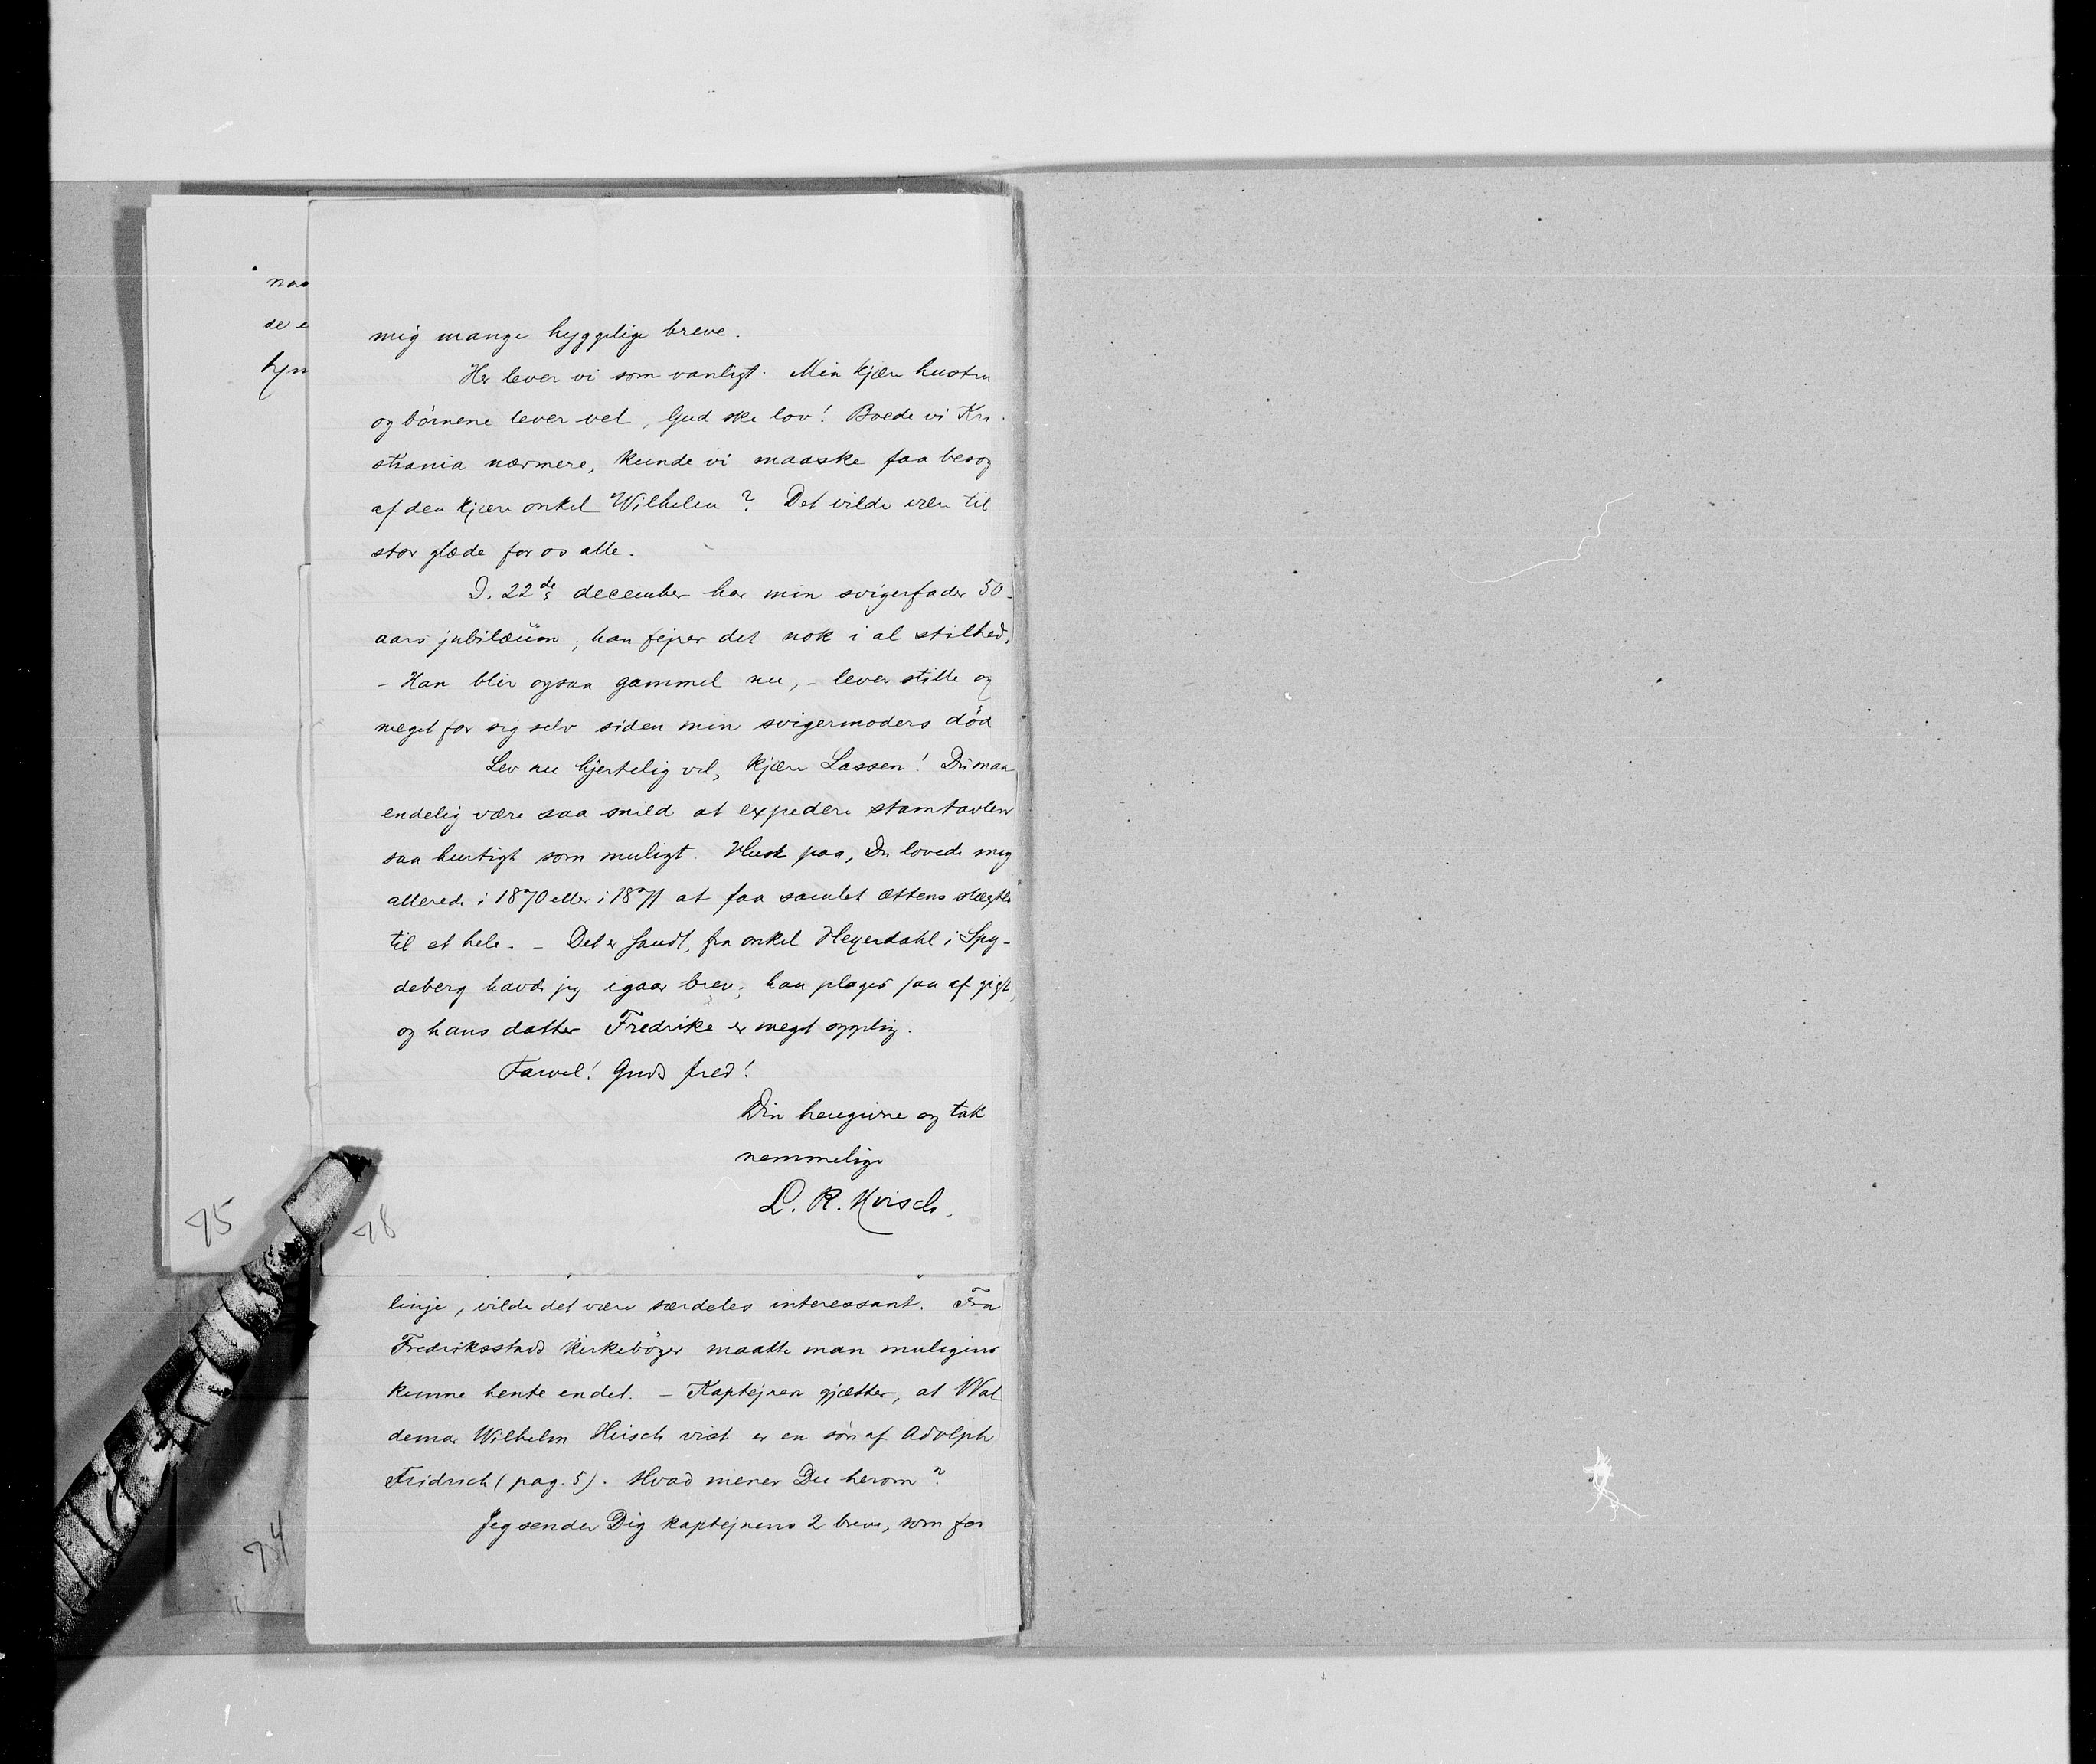 naa
de e
hjm
mig mange hyggelige breve.
Her lever vi som vanligt. Min kjære hustru
og börnene lever vel, Gud ske lov! Boede vi Kri-
stiania nærmere, kunde vi maaske faa besög
af den kjære onkel Wilhelm? Det vilde være til
stor glæde for os alle.
D. 22de december har min svigerfader 50-
aars jubilæum; han fejrer det nok i al stilhed.
- Han blir ogsaa gammel nu, - lever stille og
meget for sig selv siden min svigermoders död
Lev nu hjertelig vel, kjære Lassen! Du maa
endelig være saa snild at expedere stamtavlen
saa hurtigt som muligt. Husk paa, Du lovede mig
allerede i 1870 eller i 1871 at faa samlet ættens
til et hele. - Det er sandt, fra onkel Heyerdahl i Spy-
deberg havde jeg igaar brev; han plages saa af gigt,
og hans datter Fredrike er meget
Farvel! Guds fred!
Din hengivne og tak
nemmelige
L. R. Hvisch.
75
78
linje, vilde det være særdeles interessant. Fra
Fredriksstads kirkebøger maatte man muligens
kunne hente en del. - Kaptejnen gjætter, at Wal
demar Wilhelm Huisch vist er en sön af Adolph
Fridrich (pag. 5). Hvad mener Du herom?
Jeg sender Dig kaptejnens 2 breve, som for
74